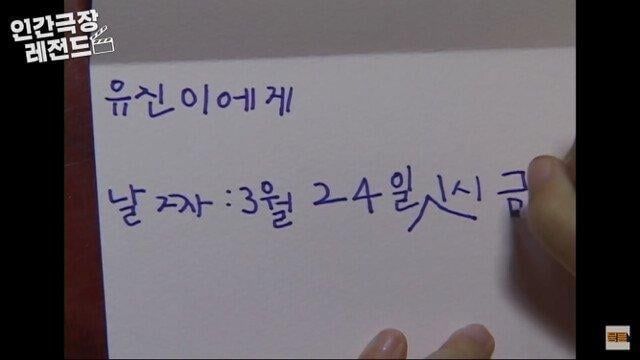 인간극장
레전드
유진이에게
날짜 : 3월 24일 1시 금